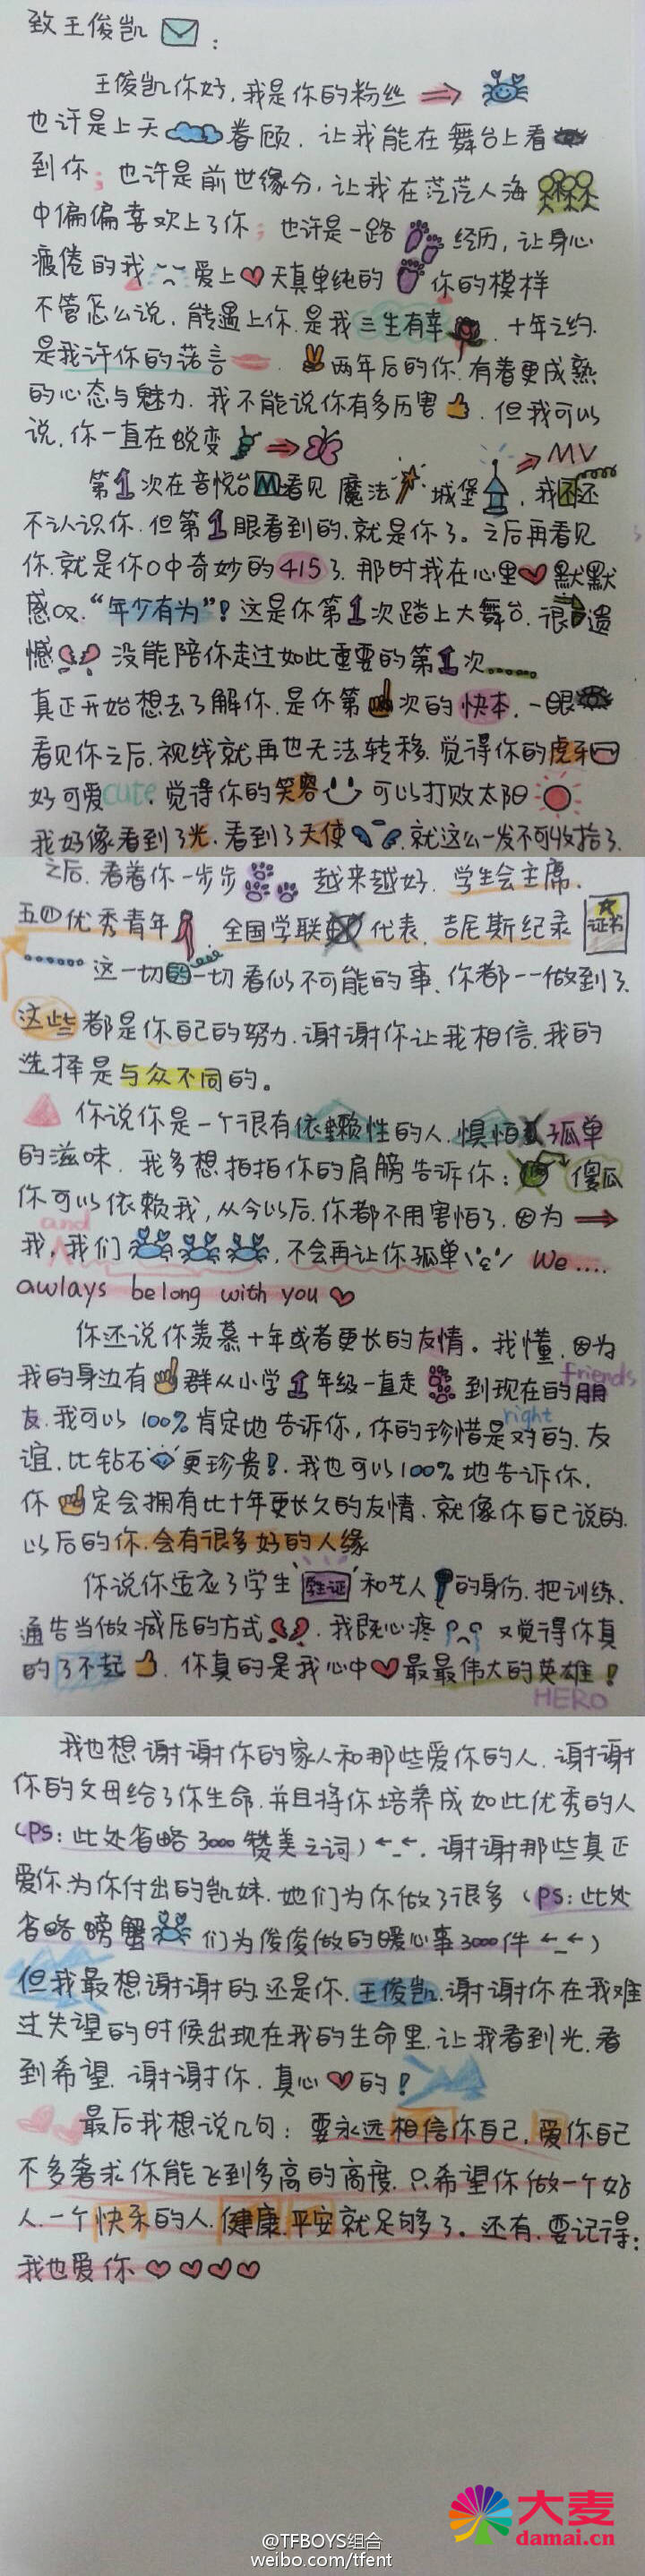 致王俊凯:
王俊凯你好,我是你的粉丝
也许是上天眷顾,让我能在舞台上看
到你;也许是前世缘分,让我在茫茫人海
中偏偏喜欢上了你;也许是一路经历,让身心
疲倦的我爱上天真单纯的你的模样
不管怎么说,能遇上你,是我三生有幸,十年之约,
是我许你的诺言.两年后的你,有着更成熟
的心态与魅力,我不能说你有多历害,但我可以
说,你一直在蜕变
第1次在音悦台看见魔法城堡MV,我还
不认识你,但第1眼看到的,就是你了。之后再看见
你,就是你口中奇妙的415了,那时我在心里默默
感叹,“年少有为”!这是你第1次踏上大舞台,很遗
憾没能陪你走过如此重要的第1次......
真正开始想去了解你,是你第次的快本,一眼
看见你之后,视线就再也无法转移,觉得你的虎牙
好可爱cute,觉得你的笑容可以打败太阳
我好像看到了光,看到了天使,就这么一发不可收拾了.
之后,看着你一步步越来越好,学生会主席,
五四优秀青年,全国学联代表,吉尼斯纪录证书
......这一切的一切看似不可能的事,你都一一做到了.
这些都是你自己的努力,谢谢你让我相信,我的
选择是与众不同的。
你说你是一个很有依赖性的人,惧怕孤单
的滋味,我多想拍拍你的肩膀告诉你:傻瓜
你可以依赖我,从今以后,你都不用害怕了,因为
and
我,我们,不会再让你孤单 We....
awlays belong with you
你还说你羡慕十年或者更长的友情。我懂,因为
我的身边有群从小学1年级一直走到现在的朋friends
友,我可以100%肯定地告诉你,你的珍惜是对的right,友
谊,比钻石更珍贵!,我也可以100%地告诉你,
你定会拥有比十年更长久的友情,就像你自己说的,
以后的你,会有很多好的人缘
你说你适应了学生和艺人的身份,把训练,
通告当做减压的方式,我既心疼又觉得你真
的了不起,你真的是我心中最最伟大的英雄!
HERO
我也想谢谢你的家人和那些爱你的人,谢谢
你的父母给了你生命,并且将你培养成如此优秀的人
(PS:此处省略3000赞美之词)←_←,谢谢那些真正
爱你,为你付出的凯妹,她们为你做了很多(PS:此处
省略螃蟹们为俊俊做的暖心事3000件←_←)
但我最想谢谢的,还是你,王俊凯,谢谢你在我难
过失望的时候出现在我的生命里,让我看到光,看
到希望,谢谢你,真心的!
最后我想说几句:要永远相信你自己,爱你自己
不多奢求你能飞到多高的高度,只希望你做一个好
人,一个快乐的人,健康,平安就足够了。还有,要记得:
我也爱你
大麦
damai.cn
@TFBOYS组合
weibo.com/tfent